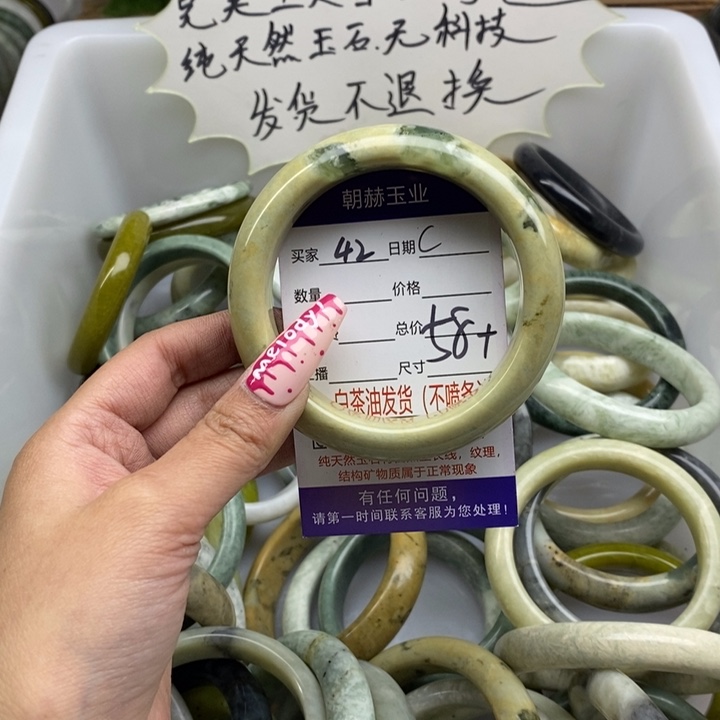 纯天然玉石.无科技
发货不退换
朝赫玉业
买家 42 日期 C
数量 价格
总价 58+
播 尺寸
白茶油发货（不喷
melody
纹理，
结构矿物质属于正常现象
有任何问题，
请第一时间联系客服为您处理！